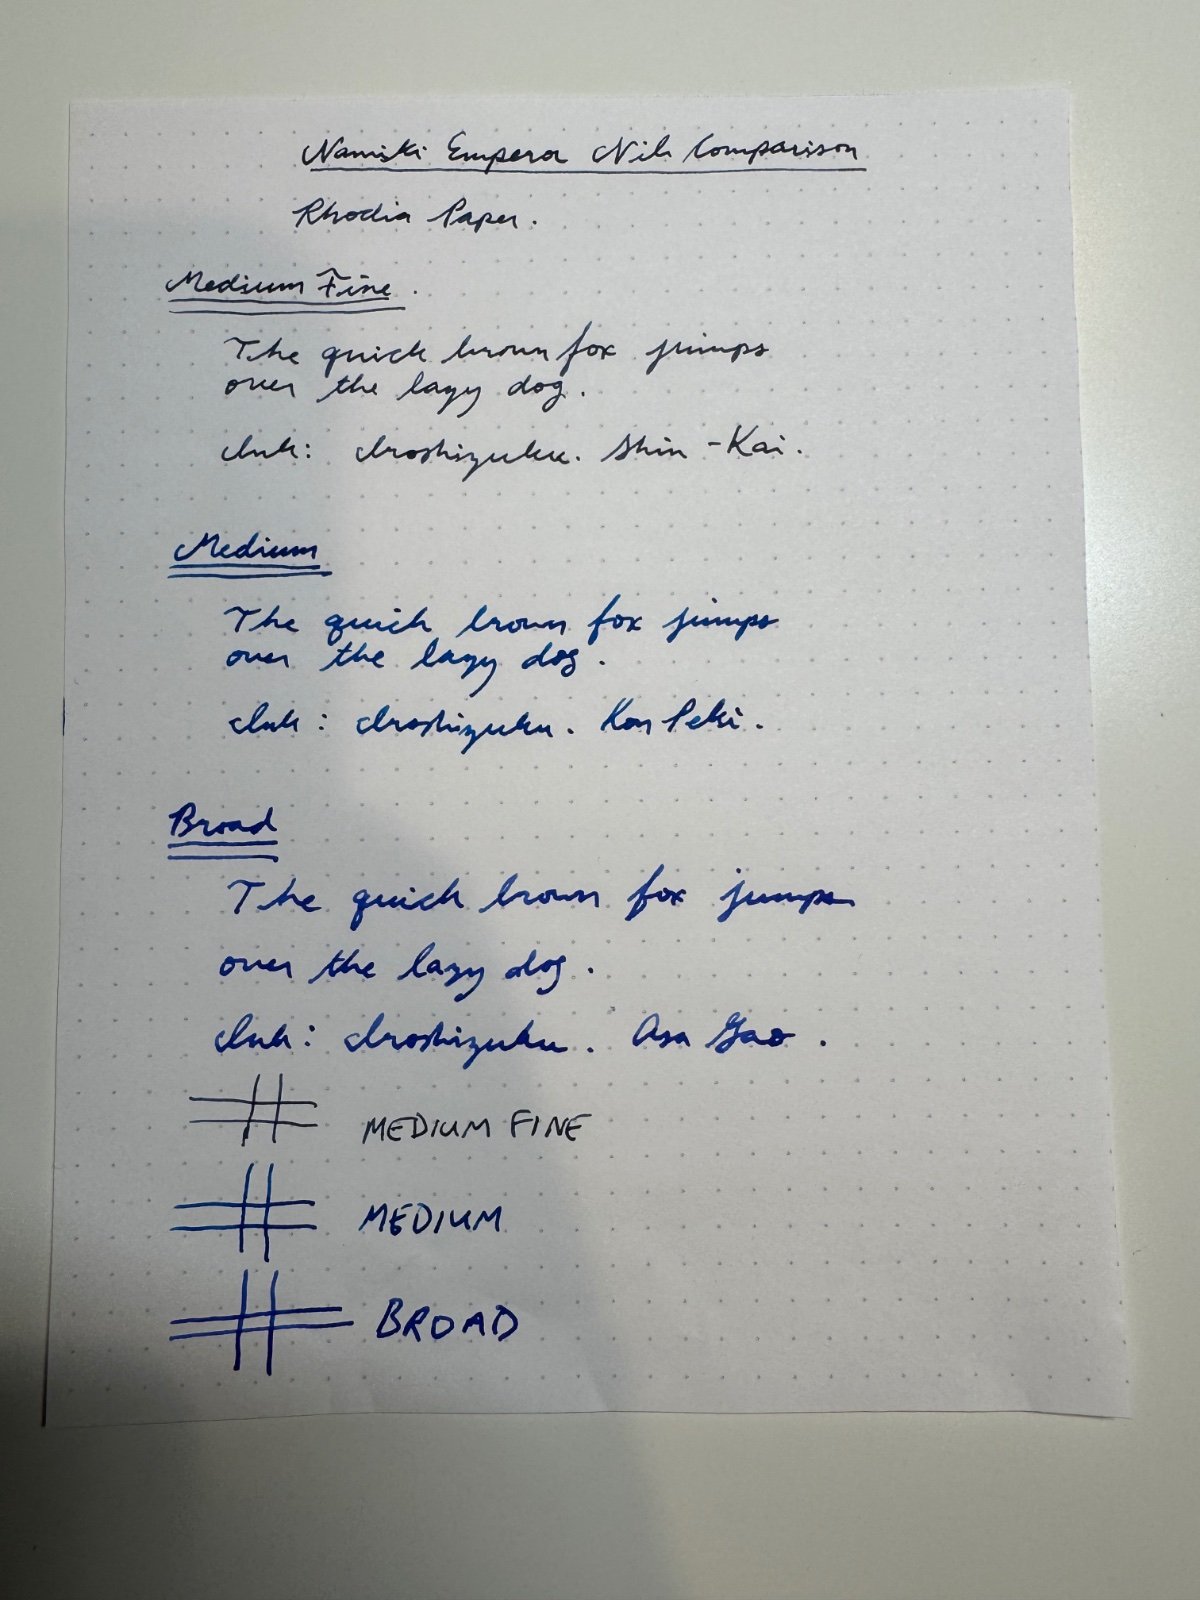 Namiki Emperor Nib Comparison
Rhodia Paper.
Medium Fine.
The quick brown fox jumps
over the lazy dog.
Ink: Iroshizuku. Shin-Kai.
Medium
The quick brown fox jumps
over the lazy dog.
Ink: Iroshizuku. Kon Peki.
Broad
The quick brown fox jumps
over the lazy dog.
Ink: Iroshizuku. Asa Gao.
MEDIUM FINE
MEDIUM
BROAD